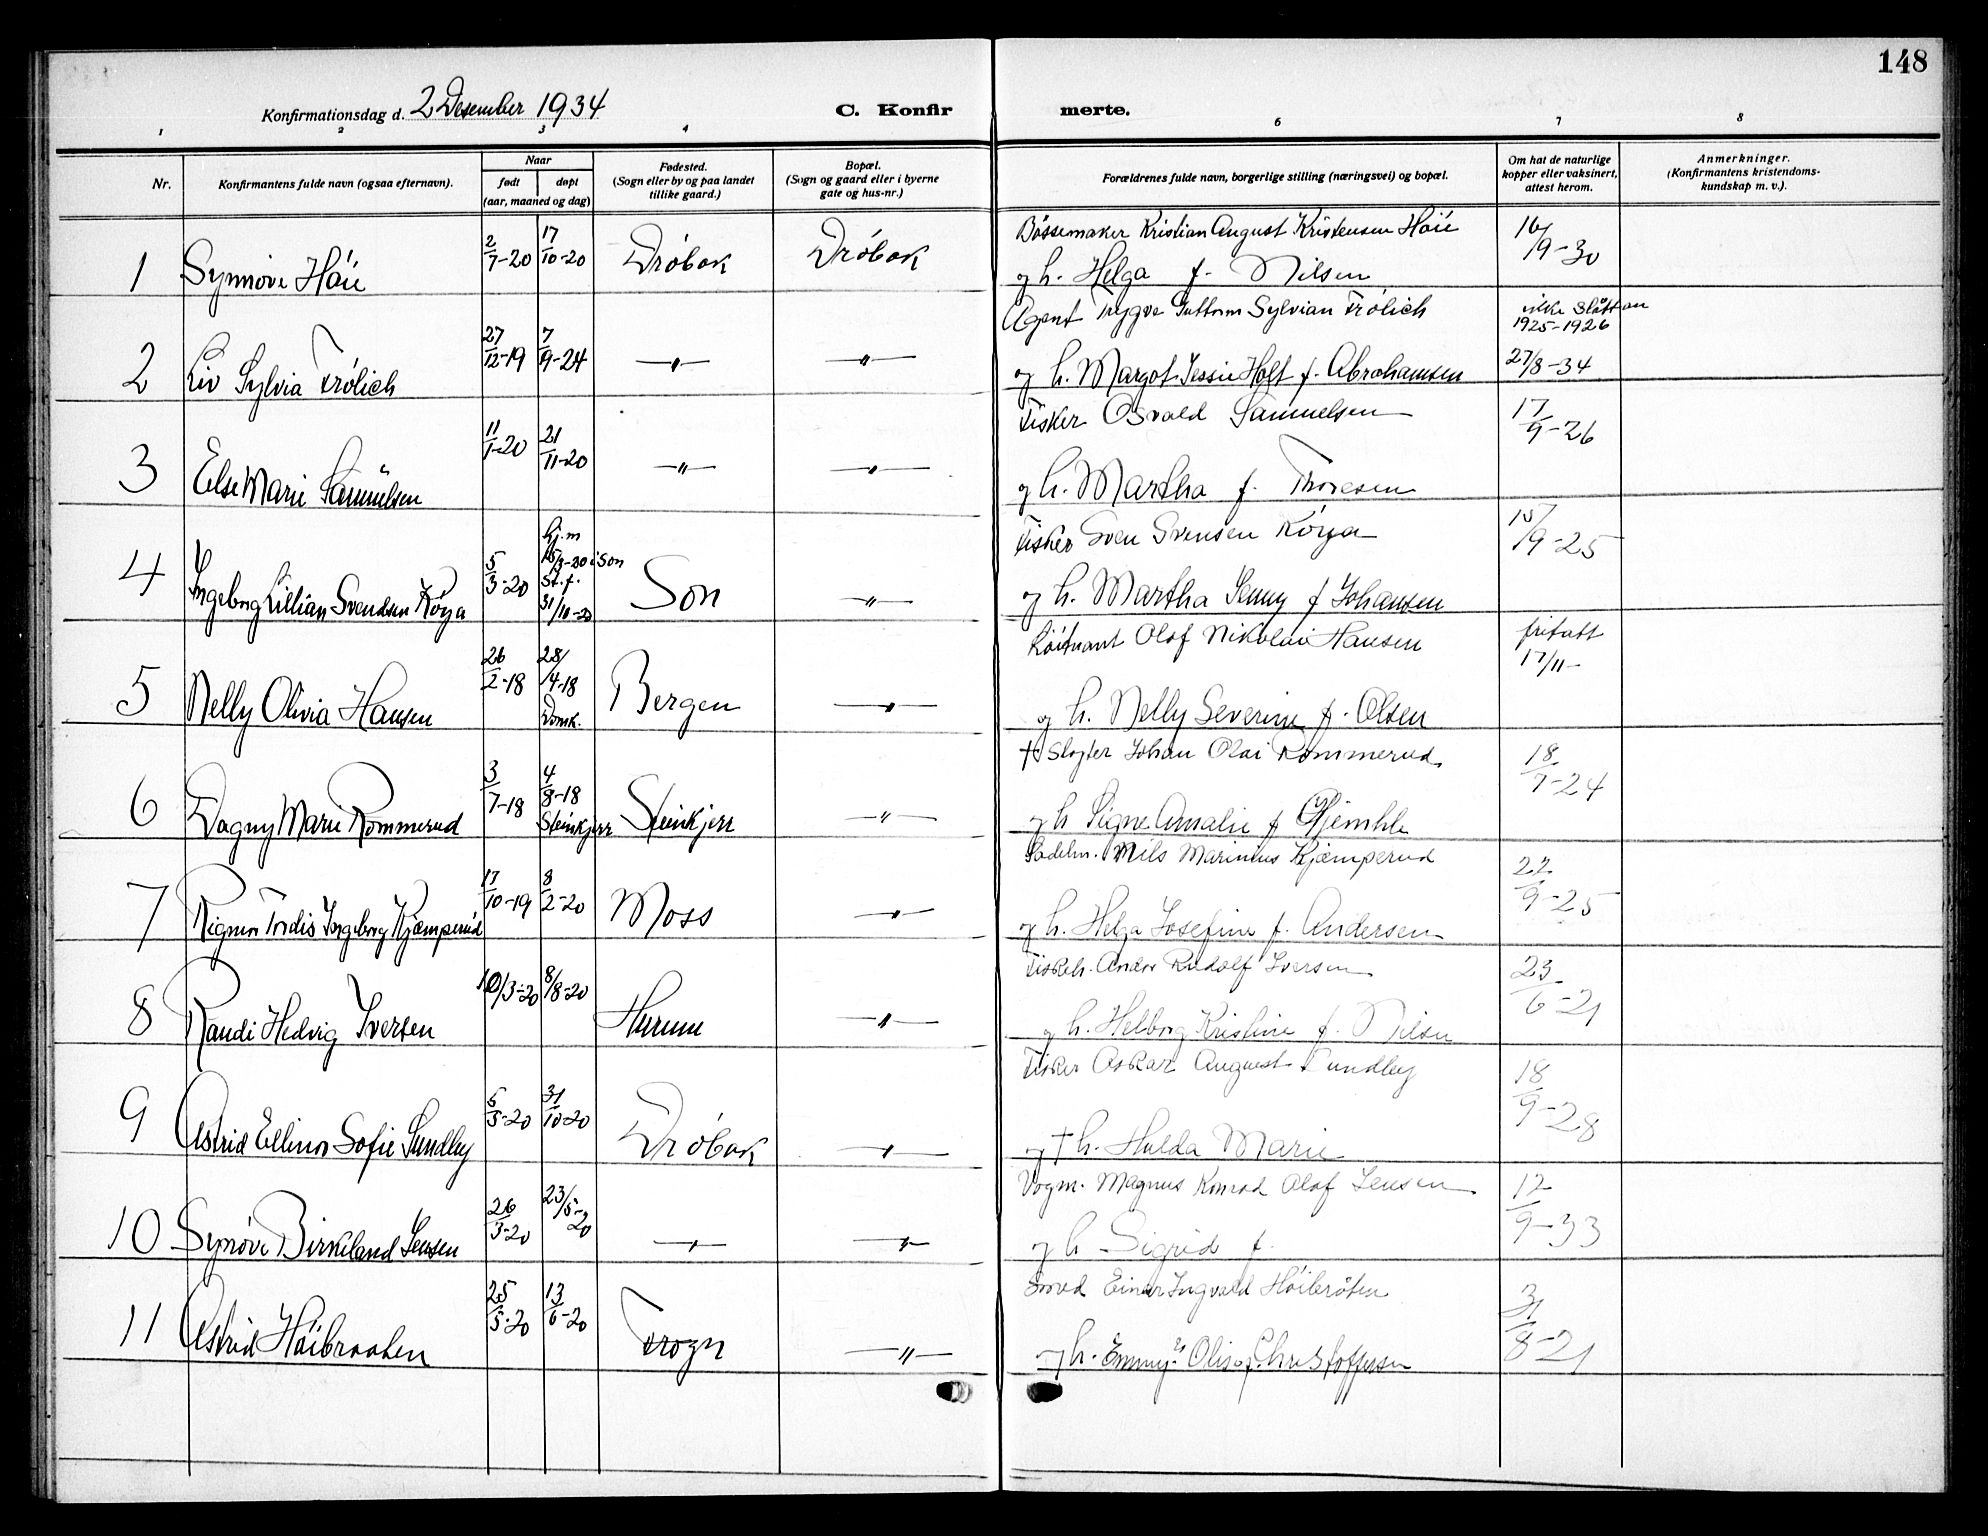 148
Konfirmationsdag d. 2 Desember 1934
C. Konfir merte.
1 2 3 4 6 7 8
Nr.
Konfirmantens fulde navn (ogsaa efternavn).
Naar
født
døpt
(aar, maaned og dag)
Fødested.
(Sogn eller by og paa landet
tillike gaard.)
Bopæl.
(Sogn og gaard eller i byerne
gate og hus-nr.)
Forældrenes fulde navn, borgerlige stilling (næringsvei) og bopæl.
Om hat de naturlige
kopper eller vaksinert,
attest herom.
Anmerkninger.
(Konfirmantens kristendoms-
kundskap m. v.)
Bössemaker Kristian August Kristensen Höie
1 Synnöve Höie 2/7-20 17/10-20 Dröbak Dröbak og h. Helga f. Nilsen 16/9-30
Agent Trygve Guttorm Sylvian Frölich ikke Slått an
1925-1926
2 Liv Sylvia Frölich 27/12-19 7/9-24 —"— —"— og h. Margot Jessie Holt f. Abrahamsen 27/8-34
Fisker Osvald Samuelsen
3 Else Marie Samuelsen 11/1-20 21/11-20 —"— —"— og h. Martha f. Thoresen 17/9-26
Fisker Sven Svensen Körja
4 Ingeborg Lillian Svendsen Körja 5/3-20 hj.m 15/3-20 i Son St. f. 31/10-20 Son —"— og h. Martha Jenny f Johansen 15/9-25
Löitnant Olaf Nikolai Hansen fritatt
17/11-
5 Nelly Olivia Hansen 26/2-18 28/4-18 Domk. Bergen —"— og h. Nelly Severine f. Olsen
† Slagter Johan Olai Rommerud
6 Dagny Marie Rommerud 3/7-18 4/8-18 Steinkjerr Steinkjerr —"— og h Signe Amalie f Gjemhle 18/7-24
Sadelm. Nils Marinius Kjæmperud
7 Rigmor Tordis Ingeborg Kjæmperud 17/10-19 8/2-20 Moss —"— og h. Helga Josefine f. Andersen 22/9-25
Fiskeh. Andor Rudolf Iversen
8 Randi Hedvig Iversen 10/3-20 8/8-20 Hurum —"— og h. Helborg Kristine f. Nilsen 23/6-21
Fisker Oskar August Sundby
9 Astrid Ellinor Sofie Sundby 5/5-20 31/10-20 Dröbak —"— og † h. Hulda Marie 18/9-28
Vogm. Magnus Konrad Olaf Jensen
10 Synöve Birkeland Jensen 26/3-20 23/5-20 —"— —"— og h Sigrid f. 12/9-33
Smed Einar Ingvald Höibråten
11 Astrid Höibraaten 25/5-20 13/6-20 Frogn —"— og h. Emmy Olise f. Christoffersen 31/8-21